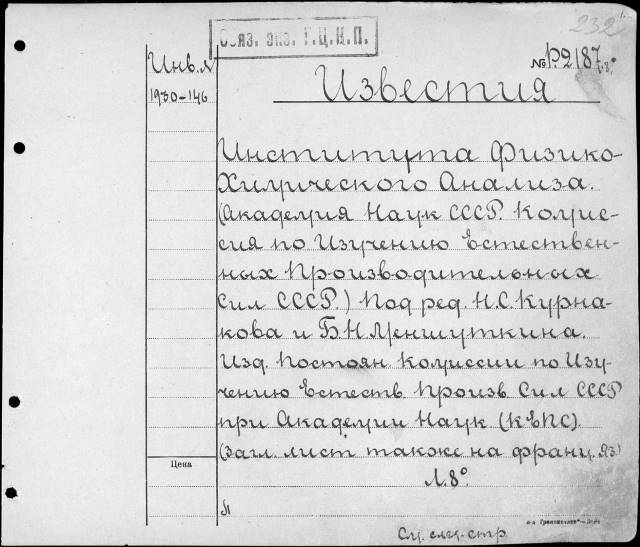 232
Обяз. экз. Г.Ц.К.П.
Инв. №
1930-146
№ Р.2187.8°
Известия
Института Физико-
Химического Анализа.
(Академия Наук СССР. Комис-
сия по Изучению Естествен-
ных Производительных
Сил СССР.) Под ред. Н.С. Курна-
кова и Б.Н. Меншуткина.
Изд. Постоян. Комиссии по Изу-
чению Естеств. Произв. Сил СССР
при Академии Наук (КЕПС).
(Загл. лист также на франц. яз.)
Л. 8°.
Цена
См. след. стр.